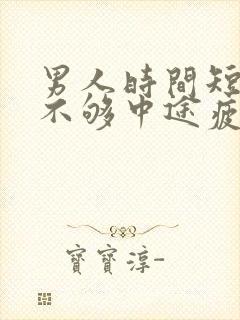 男人時間短
不够中途疲
寶寶淳-